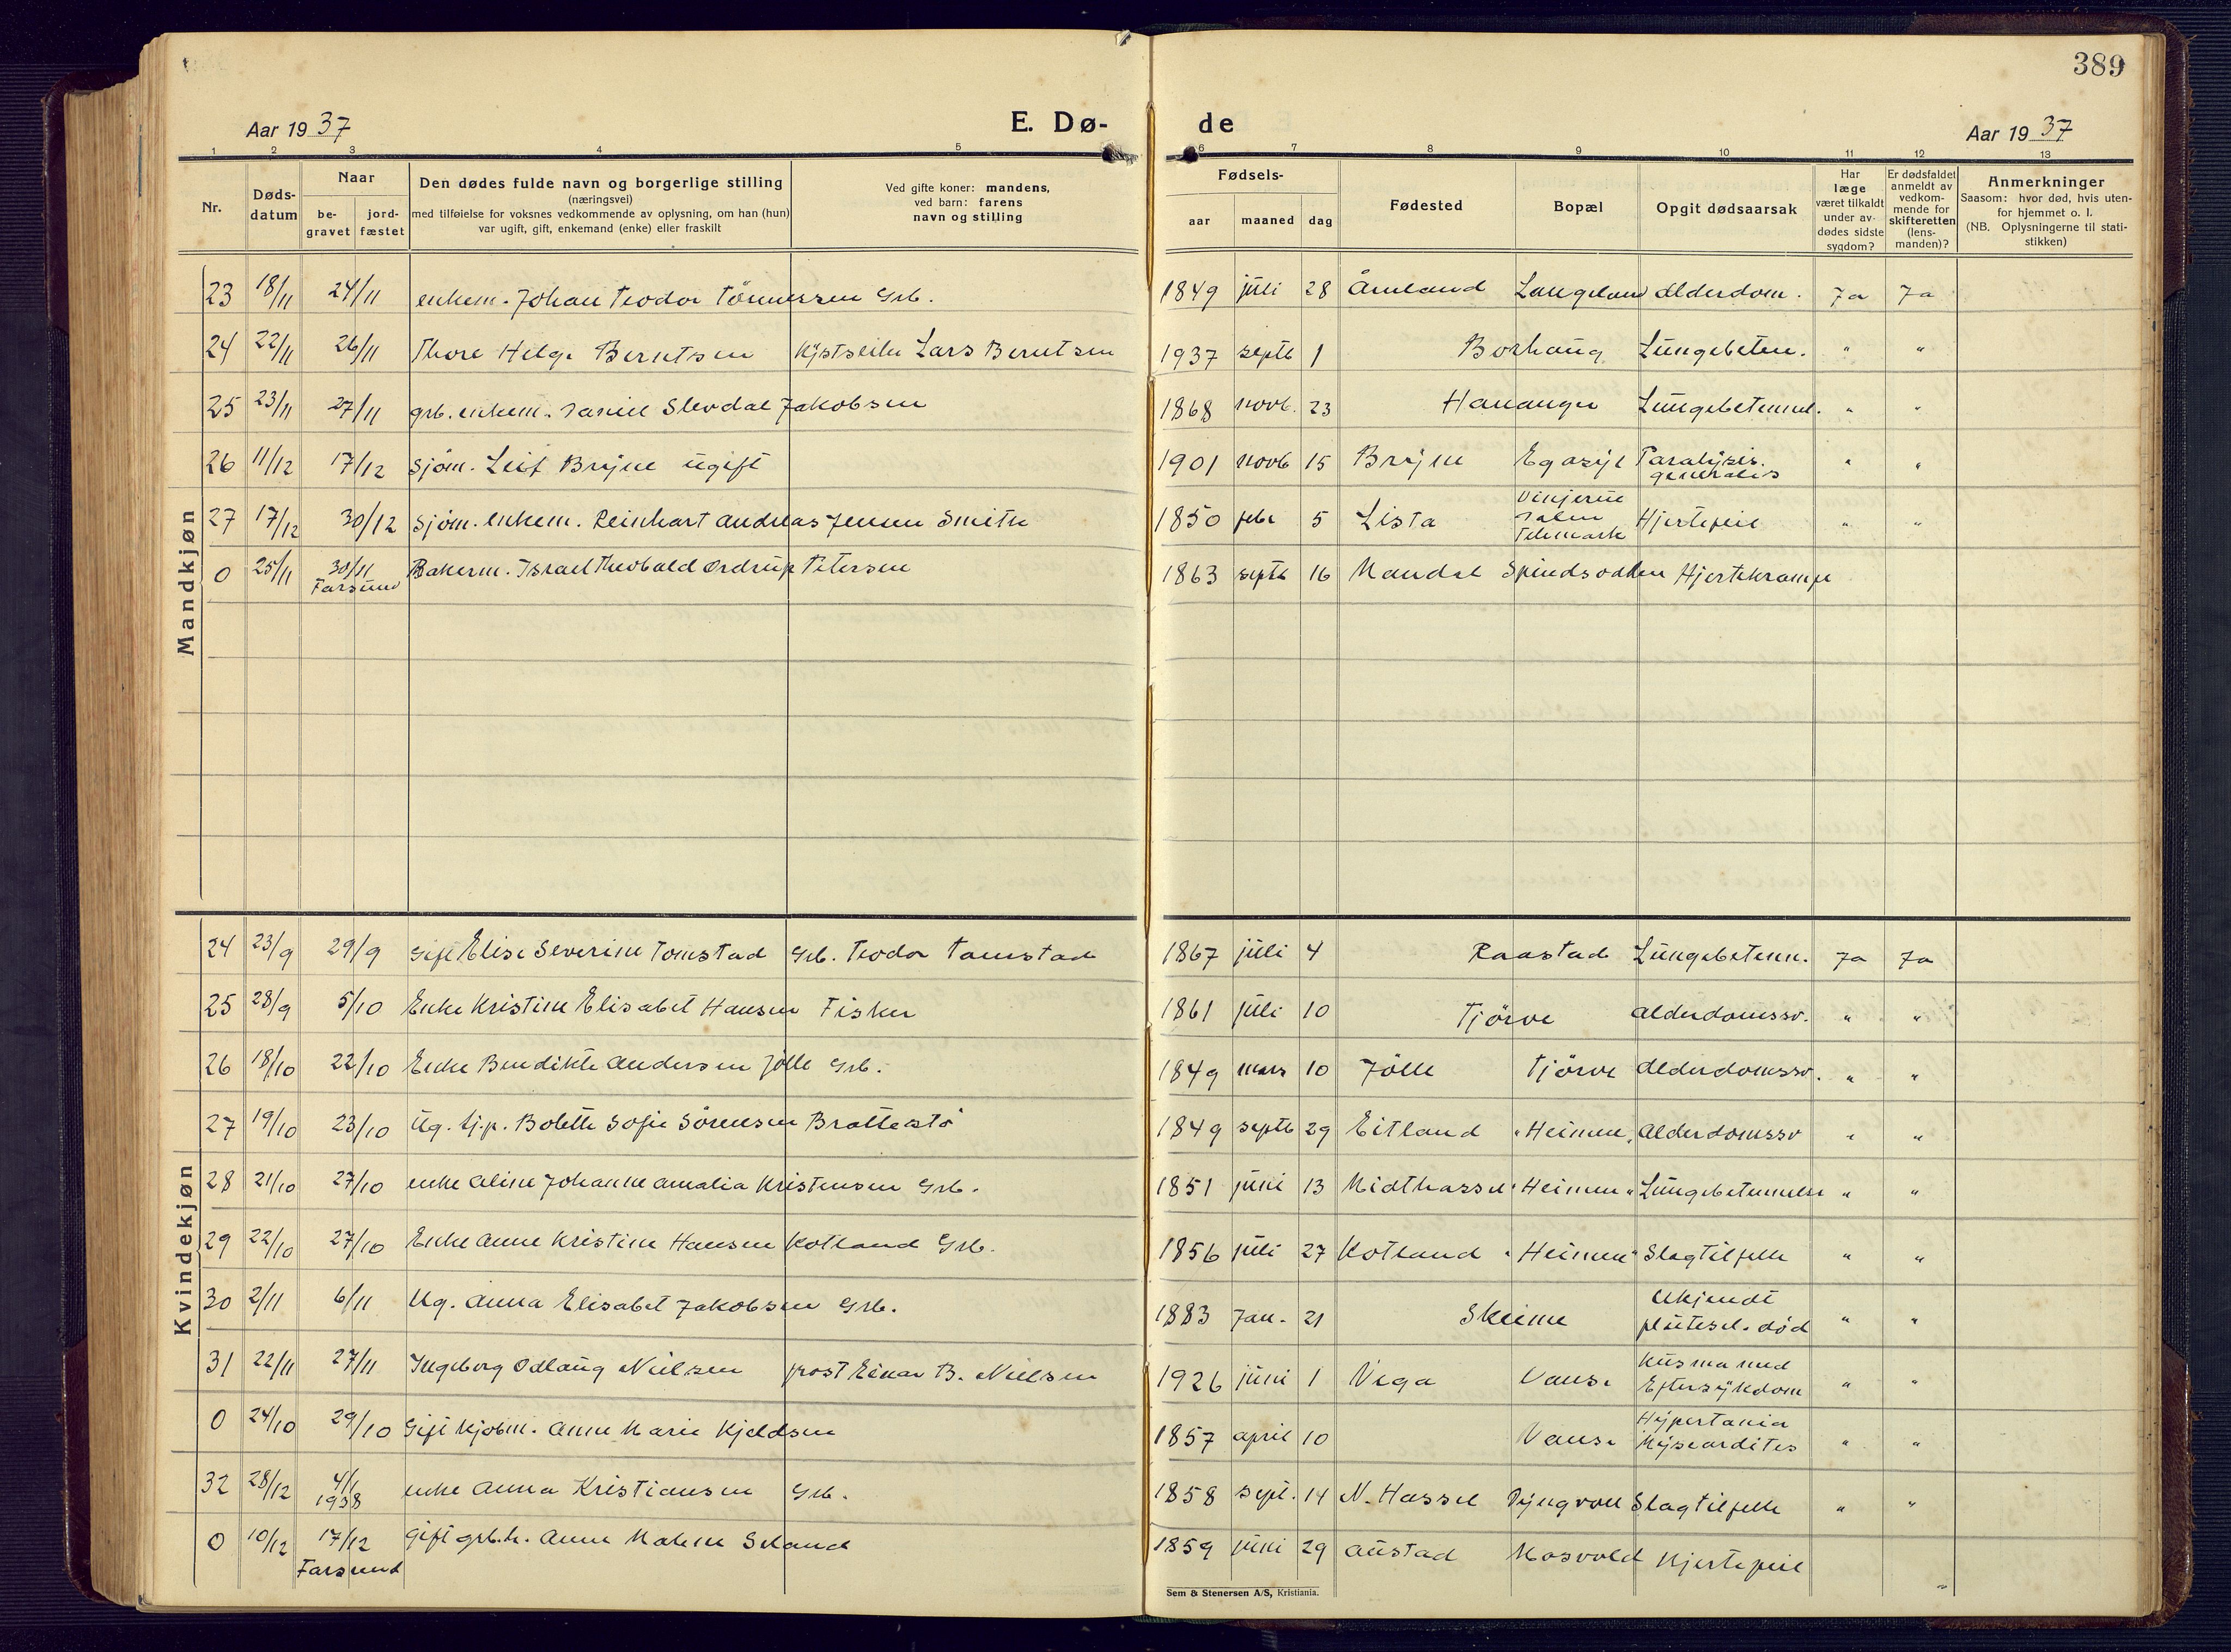 389
Aar 1937 E. Dø- de Aar 1937
1 2 3 4 5 6 7 8 9 10 11 12 13
Nr.
Døds-
datum
Naar
be-
gravet
jord-
fæstet
Den dødes fulde navn og borgerlige stilling
(næringsvei)
med tilføielse for voksnes vedkommende av oplysning, om han (hun)
var ugift, gift, enkemand (enke) eller fraskilt
Ved gifte koner: mandens,
ved barn: farens
navn og stilling
Fødsels-
aar maaned dag
Fødested
Bopæl
Opgit dødsaarsak
Har
læge
været tilkaldt
under av-
dødes sidste
sygdom?
Er dødsfaldet
anmeldt av
vedkom-
mende for
skifteretten
(lens-
manden)?
Anmerkninger
Saasom: hvor død, hvis uten-
for hjemmet o. l.
(NB. Oplysningerne til stati-
stikken)
Mandkjøn
23 18/11 24/11 enkem. Johan Teodor Tönnessen Grb. 1849 juli 28 Åmland Langeland Alderdom. Ja Ja
24 22/11 26/11 Thore Helge Berntsen Kystseiler Lars Berntsen 1937 septb 1 Borhaug Lungebeten. " "
25 23/11 27/11 grb. enkem. Daniel Slevdal Jakobsen 1868 novb. 23 Hananger Lungebetennel. " "
26 11/12 17/12 Sjöm. Leif Bryne ugift 1901 novb 15 Bryne Eg asyl Paralysis.
generalis " "
27 17/12 30/12 Sjöm. enkem. Reinhart Andreas Jensen Smith 1850 febr 5 Lista Vinje
Telemark Hjertefeil " "
0 25/11 30/11
Farsund Bakerm. Israel Theobald Ordrup Petersen 1863 septb 16 Mandal Spindsodden Hjertekrampe
Kvindekjøn
24 23/9 29/9 Gift Elise Severine Tomstad Grb. Teodor Tomstad 1867 juli 4 Raastad Lungebetenn. Ja Ja
25 28/9 5/10 Enke Kristine Elisabet Hansen Fisker 1861 juli 10 Tjörve Alderdomssv. " "
26 18/10 22/10 Enke Bendikte Andersen Jölle Grb. 1849 mars 10 Jölle Tjörve Alderdomssv. " "
27 19/10 23/10 Ug. tj.p. Bolette Sofie Sörensen Brattestö 1849 septb 29 Eitland "Heimen" Alderdomssv " "
28 21/10 27/10 enke Aline Johanne Amalia Kristensen Grb. 1851 juni 13 Midthassel "Heimen" Lungebetennelse " "
29 22/10 27/10 Enke Anne Kristine Hansen Kotland Grb. 1856 juli 27 Kotland "Heimen" Slagtilfelle " "
30 2/11 6/11 Ug. Anna Elisabet Jakobsen Grb. 1883 Jan. 21 Skeime Ukjendt
plutsel. död " "
31 22/11 27/11 Ingeborg Odlaug Nielsen prost Einar B. Nielsen 1926 juni 1 Vega Vanse Kusma med
Eftersykdom " "
0 24/10 29/10 Gift kjøbm. Anne Marie Kjeldsen 1857 april 10 Vanse Hypertania
Myscardites " "
32 28/12 4/1
1938 enke Anna Kristiansen Grb. 1858 sept. 14 N. Hassel Dyngvoll Slagtilfelle " "
0 10/12 17/12
Farsund Gift grb.k. Anne Malene Seland 1859 juni 29 Austad Mosvold Hjertefeil "
Sem & Stenersen A/S, Kristiania.